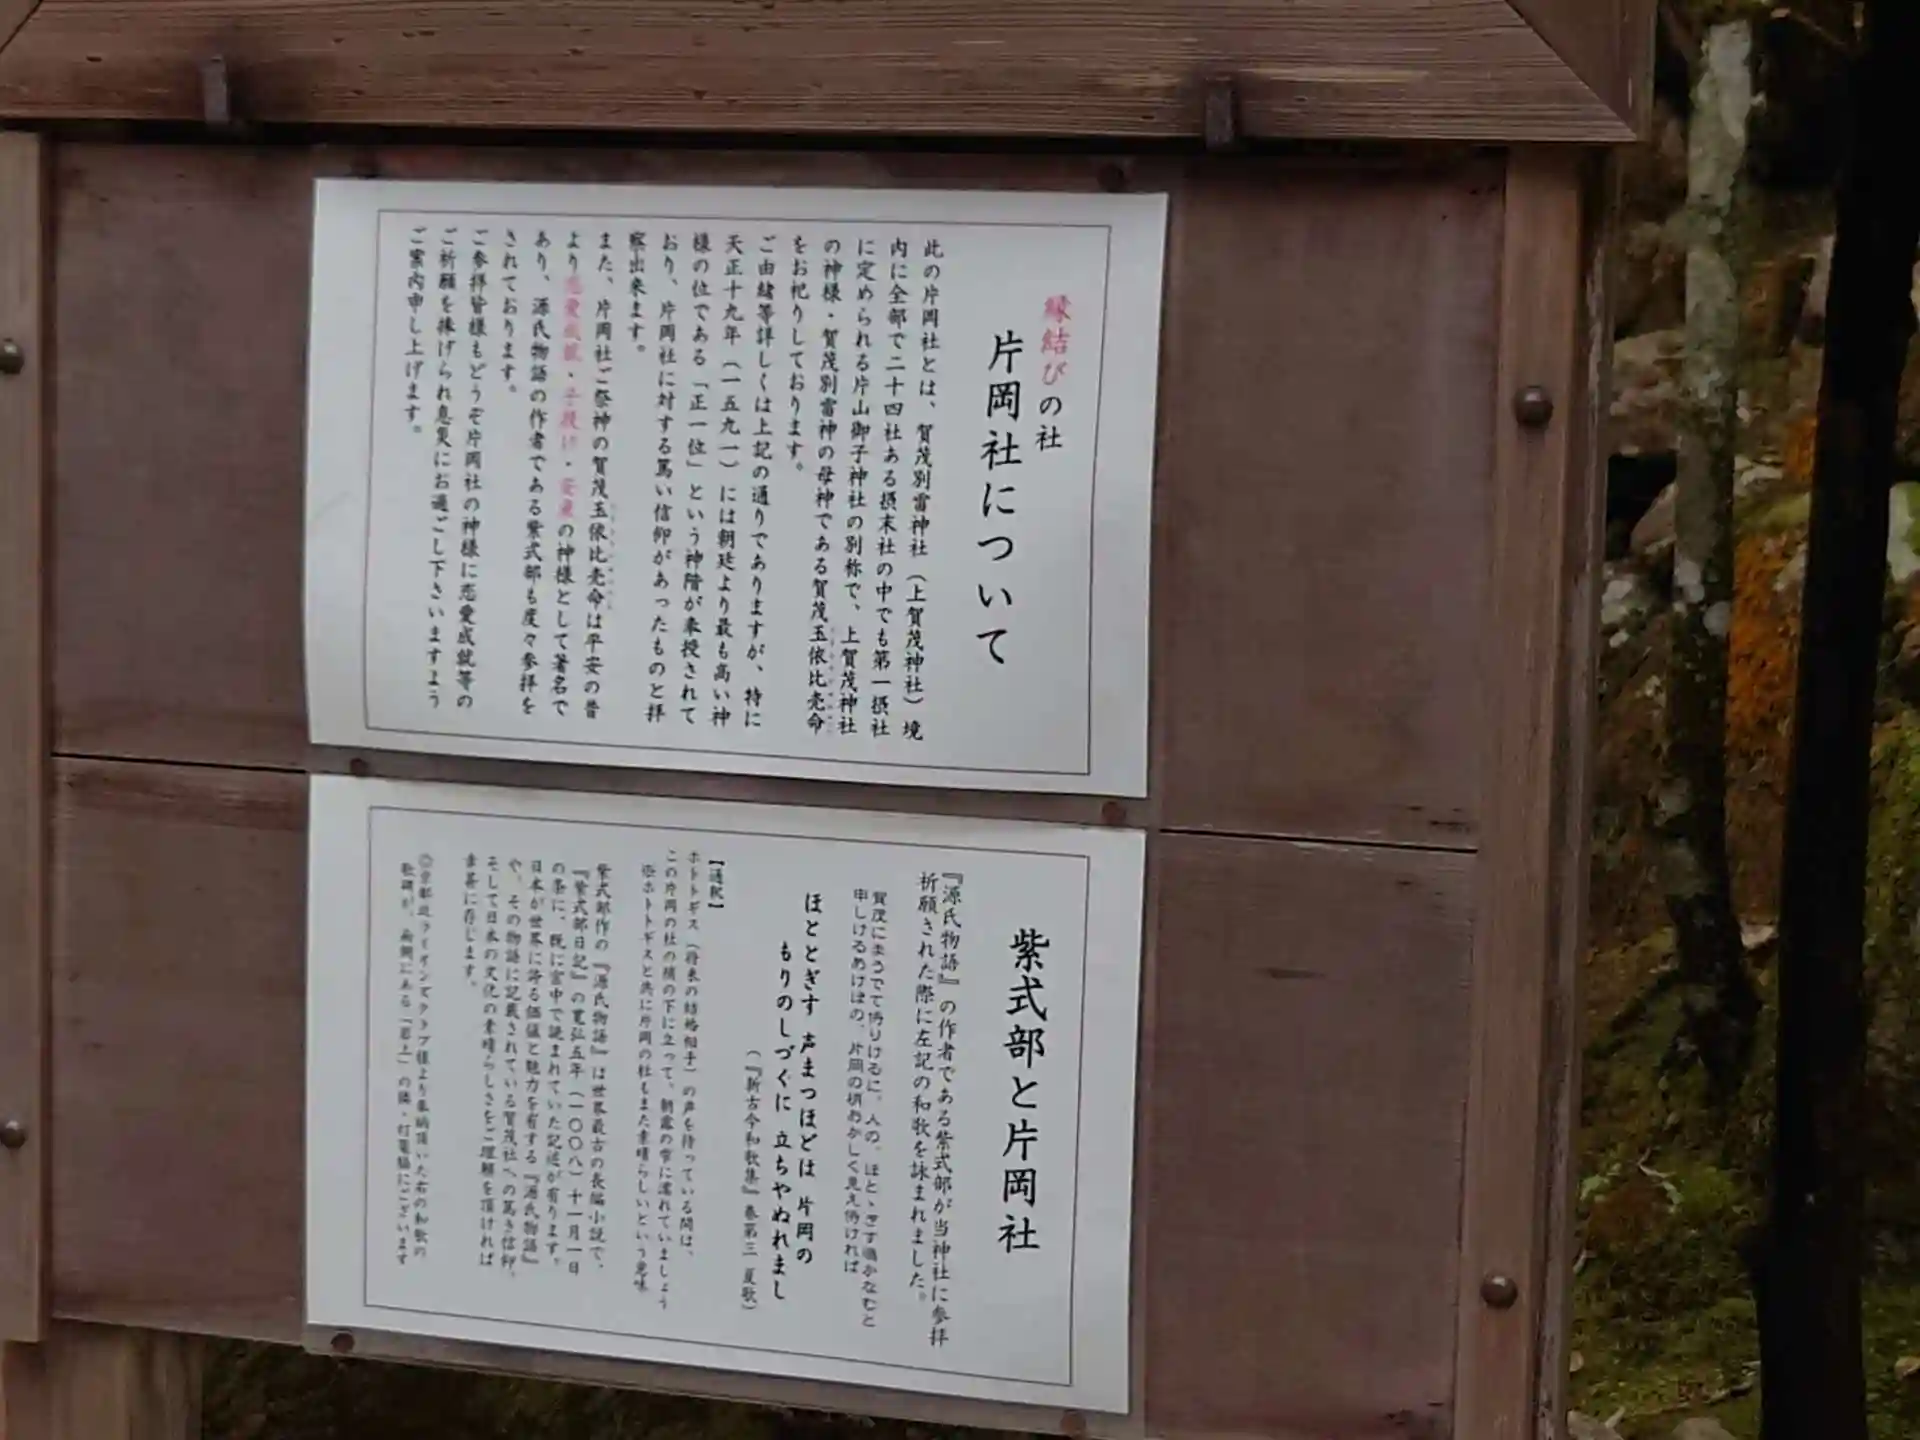 縁結びの社
片岡社について
此の片岡社とは、賀茂別雷神社（上賀茂神社）境
内に全部で二十四社ある摂末社の中でも第一摂社
に定められる片山御子神社の別称で、上賀茂神社
の神様・賀茂別雷神の母神である賀茂玉依比売命
をお祀りしております。
ご由緒等詳しくは上記の通りでありますが、特に
天正十九年（一五九一）には朝廷より最も高い神
様の位である「正一位」という神階が奉授されて
おり、片岡社に対する篤い信仰があったものと拝
察出来ます。
また、片岡社ご祭神の賀茂玉依比売命は平安の昔
より恋愛成就・子授け・安産の神様として著名で
あり、源氏物語の作者である紫式部も度々参拝を
されております。
ご参拝皆様もどうぞ片岡社の神様に恋愛成就等の
ご祈願を捧げられ息災にお過ごし下さいますよう
ご案内申し上げます。
紫式部と片岡社
『源氏物語』の作者である紫式部が当神社に参拝
祈願された際に左記の和歌を詠まれました。
賀茂にまうでて侍りけるに、人の、ほとゝぎす鳴かなむと
申しけるあけぼの、片岡の梢おかしく見え侍ければ
ほととぎす 声まつほどは 片岡の
もりのしづくに 立ちやぬれまし
（『新古今和歌集』巻第三 夏歌）
【通釈】
ホトトギス（将来の結婚相手）の声を待っている間は、
この片岡の社の梢の下に立って、朝露の雫に濡れていましょう
※ホトトギスと共に片岡の社もまた素晴らしいという意味
紫式部作の『源氏物語』は世界最古の長編小説で、
『紫式部日記』の寛弘五年（一〇〇八）十一月一日
の条に、既に宮中で読まれていた記述が有ります。
日本が世界に誇る価値と魅力を有する『源氏物語』
や、その物語に記載されている賀茂社への篤き信仰、
そして日本の文化の素晴らしさをご理解を頂ければ
幸甚に存じます。
◎京都北ライオンズクラブ様より奉納頂いた右の和歌の
歌碑が、南側にある「岩上」の隣・灯籠脇にございます